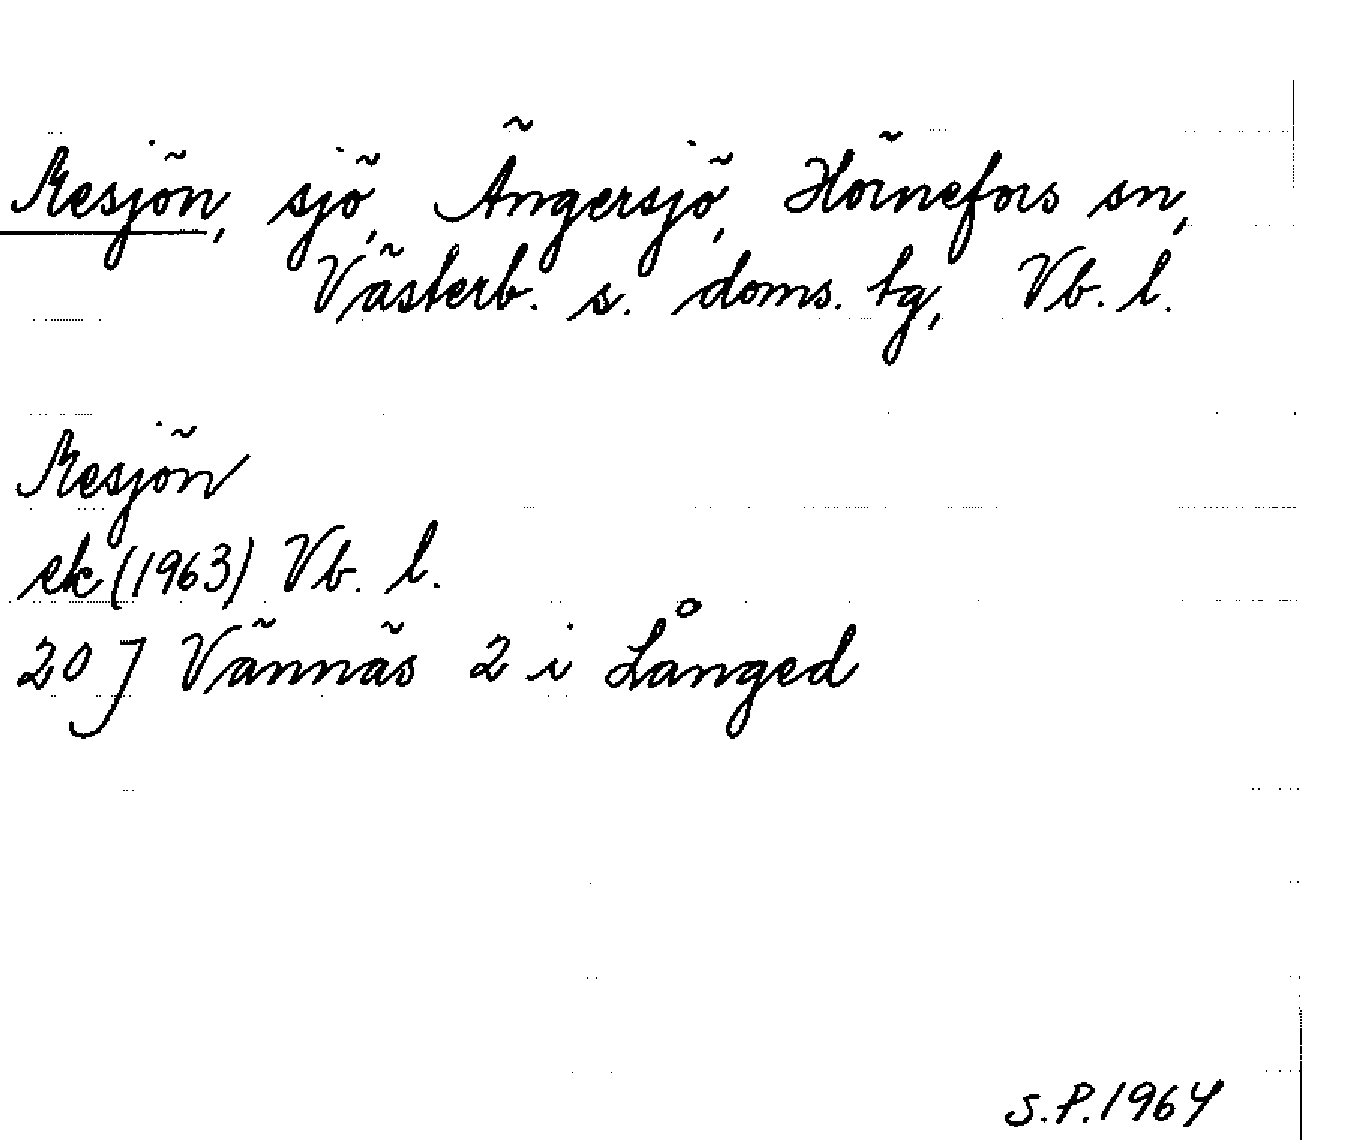 Resjön, sjö, Ängersjö, Hörnefors sn,
Västerb. s. doms. tg, Vb. l.
Resjön
ek (1963) Vb. l.
20 J Vännäs 2 i Långed
S.P. 1964